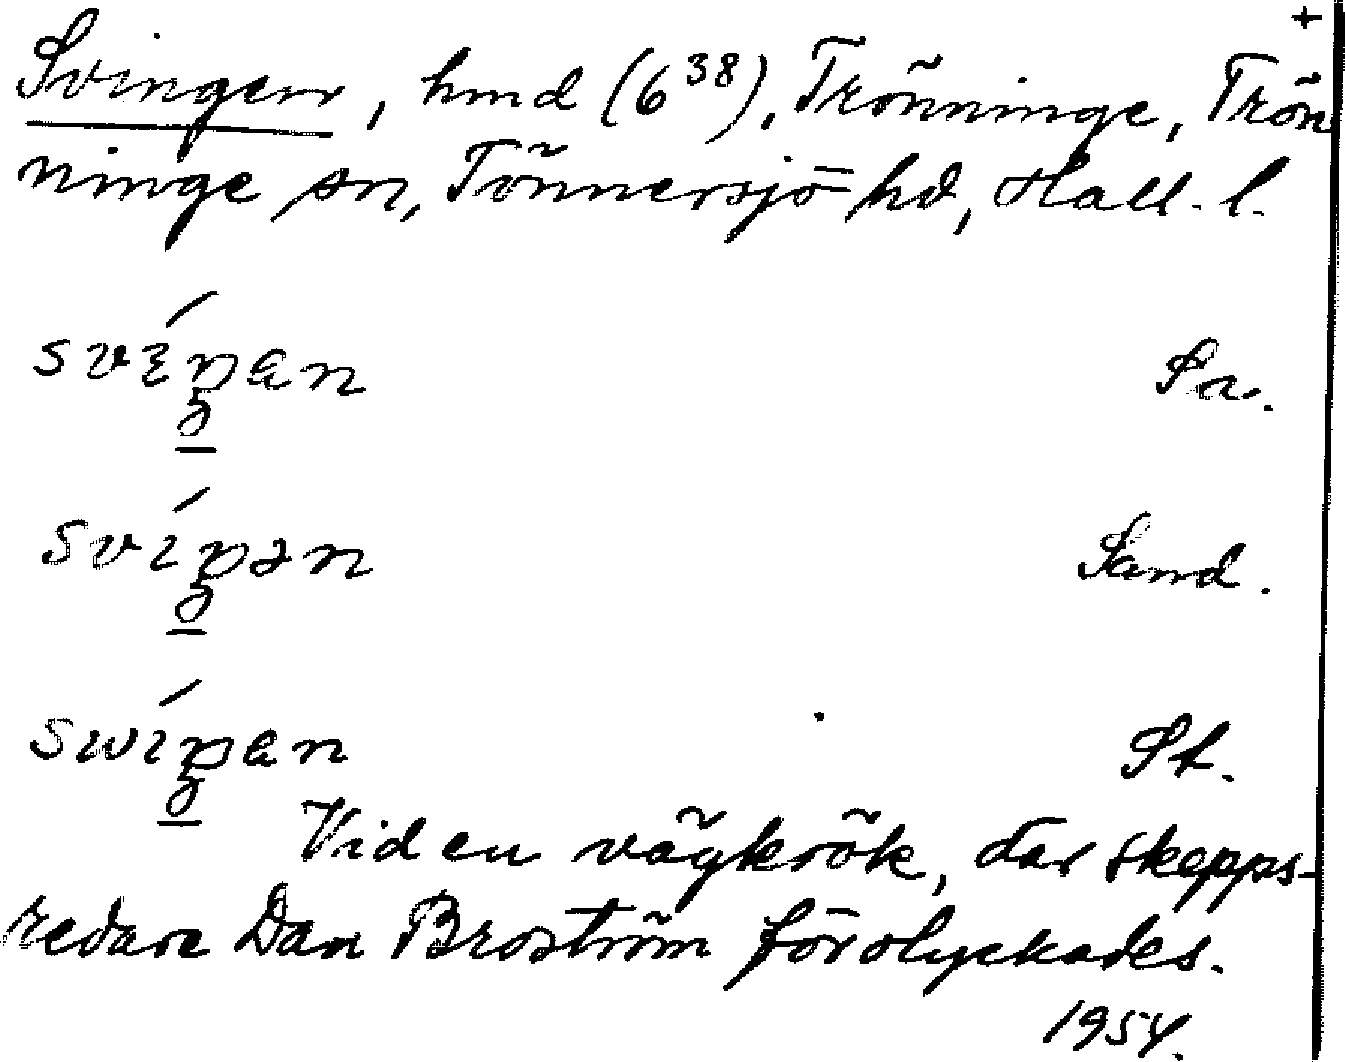 +
Svingen, hmd (6³⁸), Trönninge, Trön
ninge sn, Tönnersjö hd, Hall. l.
Sa.
Sand.
St.
Vid en vägkrök, där skepps-
redare Dan Broström förolyckades.
1954.